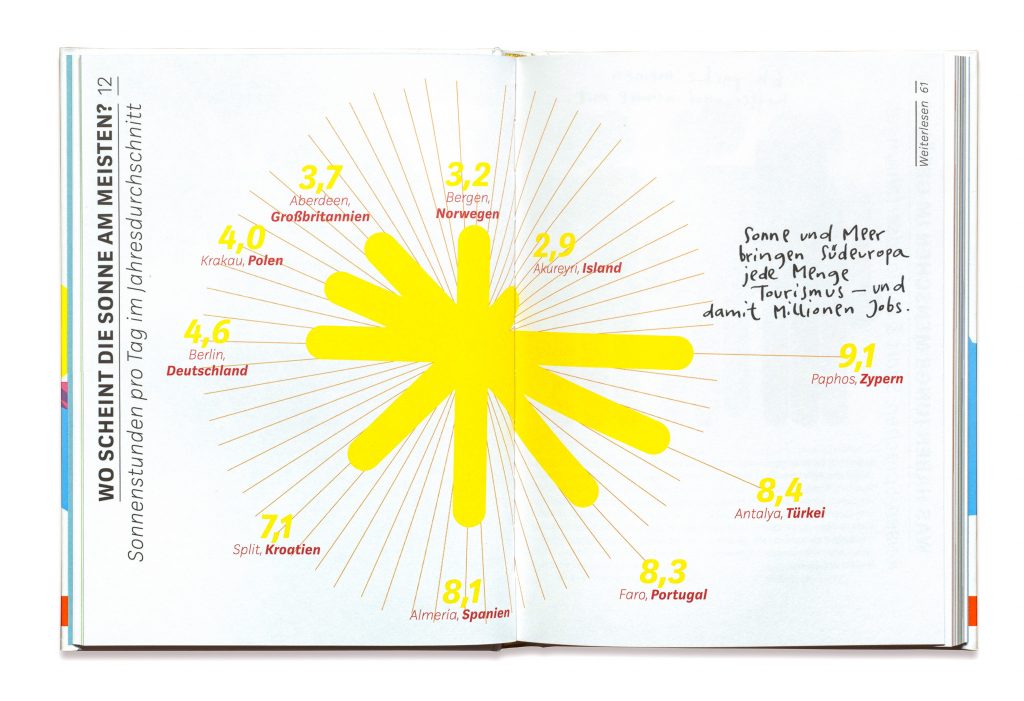 WO SCHEINT DIE SONNE AM MEISTEN? 12
Sonnenstunden pro Tag im Jahresdurchschnitt
Weiterlesen 61
3,2
Bergen,
Norwegen
2,9
Akureyri, Island
9,1
Paphos, Zypern
8,4
Antalya, Türkei
8,3
Faro, Portugal
8,1
Almería, Spanien
7,1
Split, Kroatien
4,6
Berlin,
Deutschland
4,0
Krakau, Polen
3,7
Aberdeen,
Großbritannien
Sonne und Meer
bringen Südeuropa
jede Menge
Tourismus – und
damit Millionen Jobs.